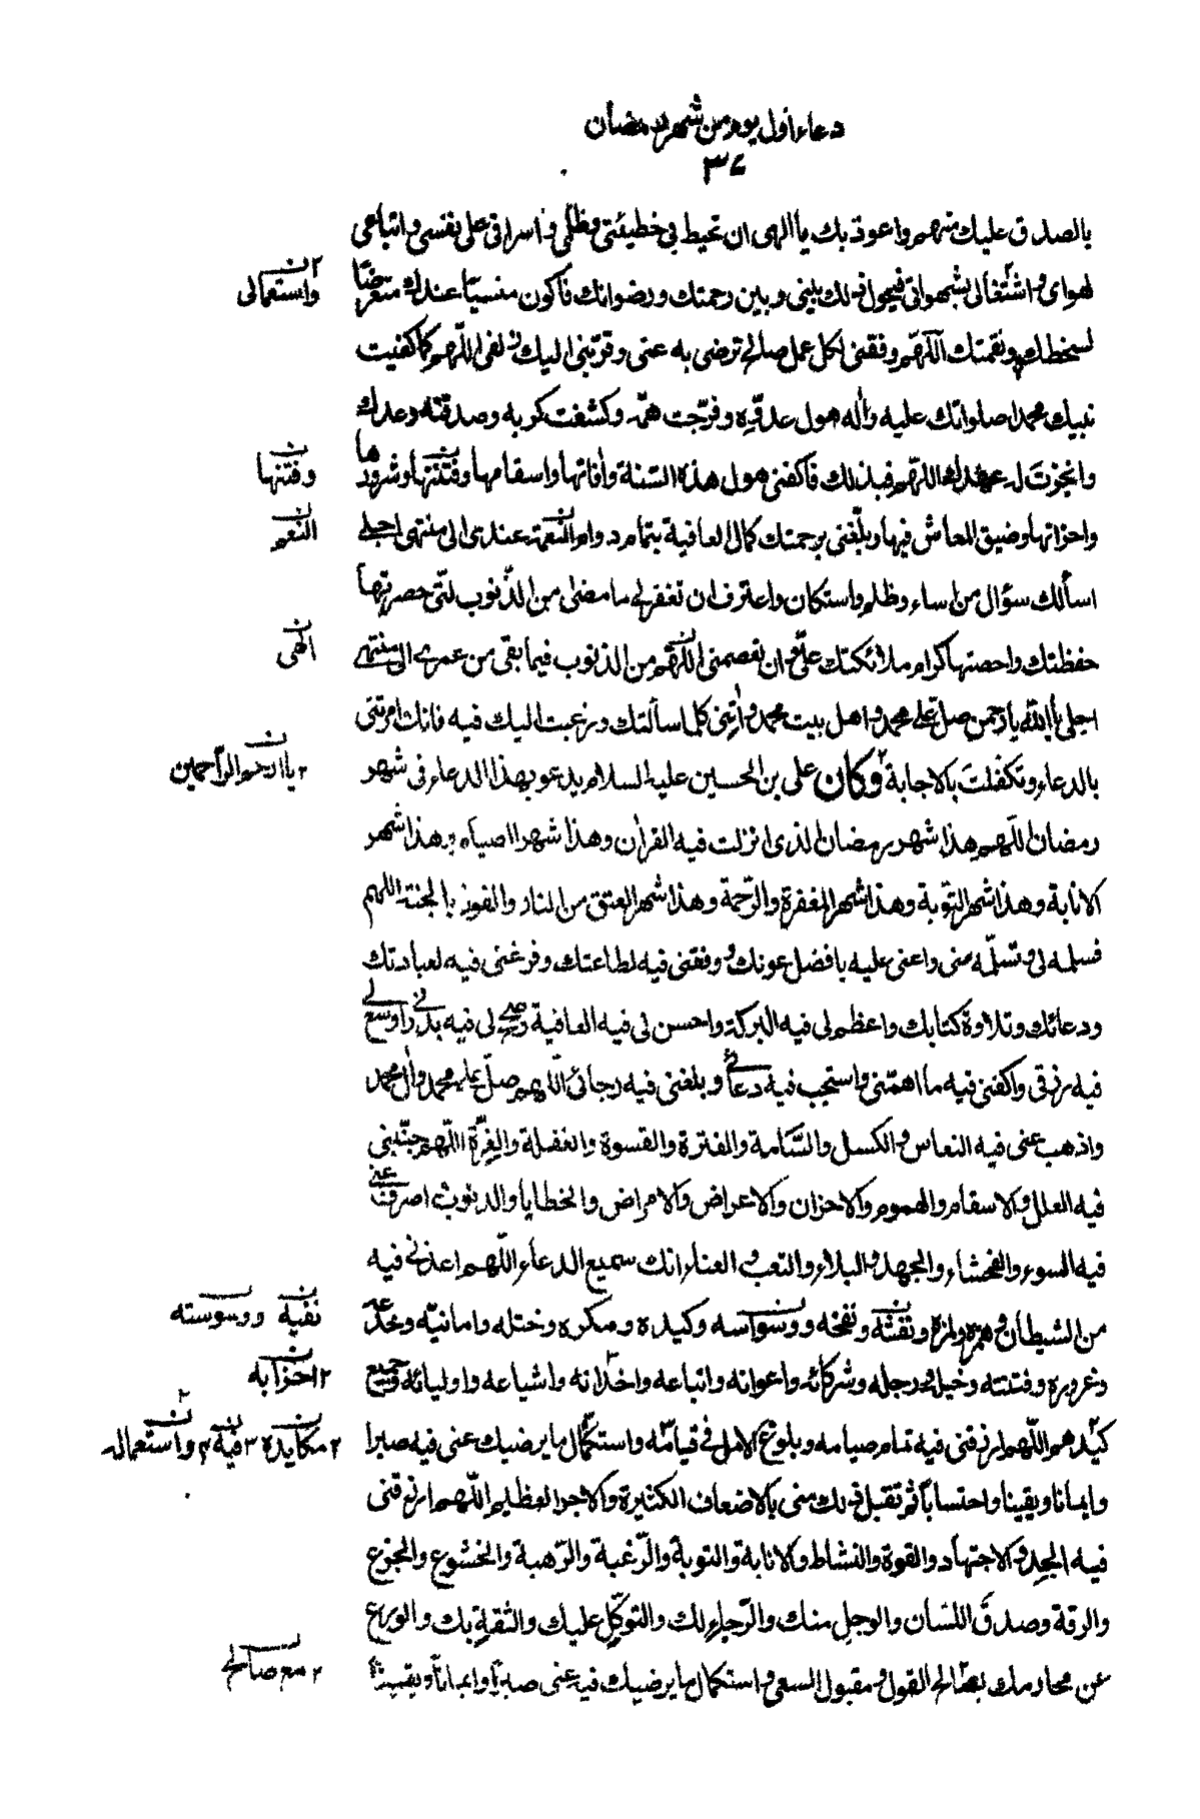 دعاء اول يوم من شهر رمضان
٣٧
بالصدق عليك منهم واعوذ بك يا الهى ان تحيط بى خطيئتى وظلمى واسرافى على نفسى واتباعى
لهواى واشتغالى بشهواتى فيحول ذلك بينى وبين رحمتك ورضوانك فاكون منسيّا عندك متعرضا
واستعمالى
لسخطك ونقمتك اللّهم وفقنى لكل عمل صالح ترضى به عنى وقرّبنى اليك زلفى اللّهم كما كفيت
نبيك محمدا صلواتك عليه واٰله هول عدوّه وفرّجت همّه وكشفت كربه وصدقته وعدك
وانجزت له عهدك اللّهم فبذلك فاكفنى هول هذه السّنة واٰفاتها واسقامها وفتنتها وشرورها
وفتنها
واحزانها وضيق المعاش فيها وبلّغنى برحمتك كمال العافية بتمام دوام النّعمة عندى الى منتهى اجلى
النعم
اسألك سؤال من اساء وظلم واستكان واعترف ان تغفر لى ما مضى من الذّنوب التّى حصرتها
حفظتك واحصتها كرام ملائكتك علىّ وان تعصمنى اللّهم من الذنوب فيما بقى من عمرى الى منتهى
الهى
اجلى يا الله يا رحمن صل على محمد واهل بيت محمد واٰتنى كلما سالتك ورغبت اليك فيه فانك امرتنى
بالدعاء وتكفلت بالاجابة ٢ وكان على بن الحسين عليه السلام يدعو بهذا الدعاء فى شهر
٢ يا ارحم الرّاحمين
رمضان اللّهم هذا شهر رمضان الذى انزلت فيه القراٰن وهذا شهر الصيام وهذا شهر
الانابة وهذا شهر التّوبة وهذا شهر المغفرة والرّحمة وهذا شهر العتق من النار والفوز بالجنة اللهم
فسلمه لى وتسلّمه منى واعنى عليه بافضل عونك ووفقنى فيه لطاعتك وفرغنى فيه لعبادتك
ودعائك وتلاوة كتابك واعظم لى فيه البركة واحسن لى فيه العافية وصح لى فيه بدنى واوسع لى
فيه رزقى واكفنى فيه ما اهمّنى واستجب فيه دعائى وبلغنى فيه رجائى اللّهم صلّ على محمد واٰل محمد
واذهب عنى فيه النعاس والكسل والسّامة والفترة والقسوة والغفلة والغرّة اللّهم جنّبنى
فيه العلل والاسقام والهموم والاحزان والاعراض والامراض والخطايا والذنوب اصرف عنى
فيه السوء والفحشاء والجهد والبلاء والتعب والعناء انك سميع الدعاء اللّهم اعذنى فيه
من الشيطان وهمزه ولمزه ونفثه ونفخه ووسواسه وكيده ومكره وختله وامانيّه وخدعه
نفيه ووسوسته
وغروره وفتنته وخيله ورجله وشركائه واعوانه واتباعه واخدانه واشياعه واوليائه وجميع
٢ احزابه
كيدهم اللّهم ارزقنى فيه تمام صيامه وبلوغ الامل فى قيامه واستكمال ما يرضيك عنى فيه صبرا
٢ مكايده ٣ فيه ٢ واستعماله
وايمانا ويقينا واحتسابا ثم تقبل ذلك منى بالاضعاف الكثيرة والاجر العظيم اللّهم ارزقنى
فيه الجد والاجتهاد والقوة والنشاط والانابة والتوبة والرّغبة والرّهبة والخشوع والجزع
والرقة وصدق اللسان والوجل منك والرّجاء لك والتوكل عليك والثقة بك والورع
عن محارمك بصالح القول ومقبول السعى واستكمال ما يرضيك فيه عنى صبرا وايمانا ويقينا
٢ مع صالح